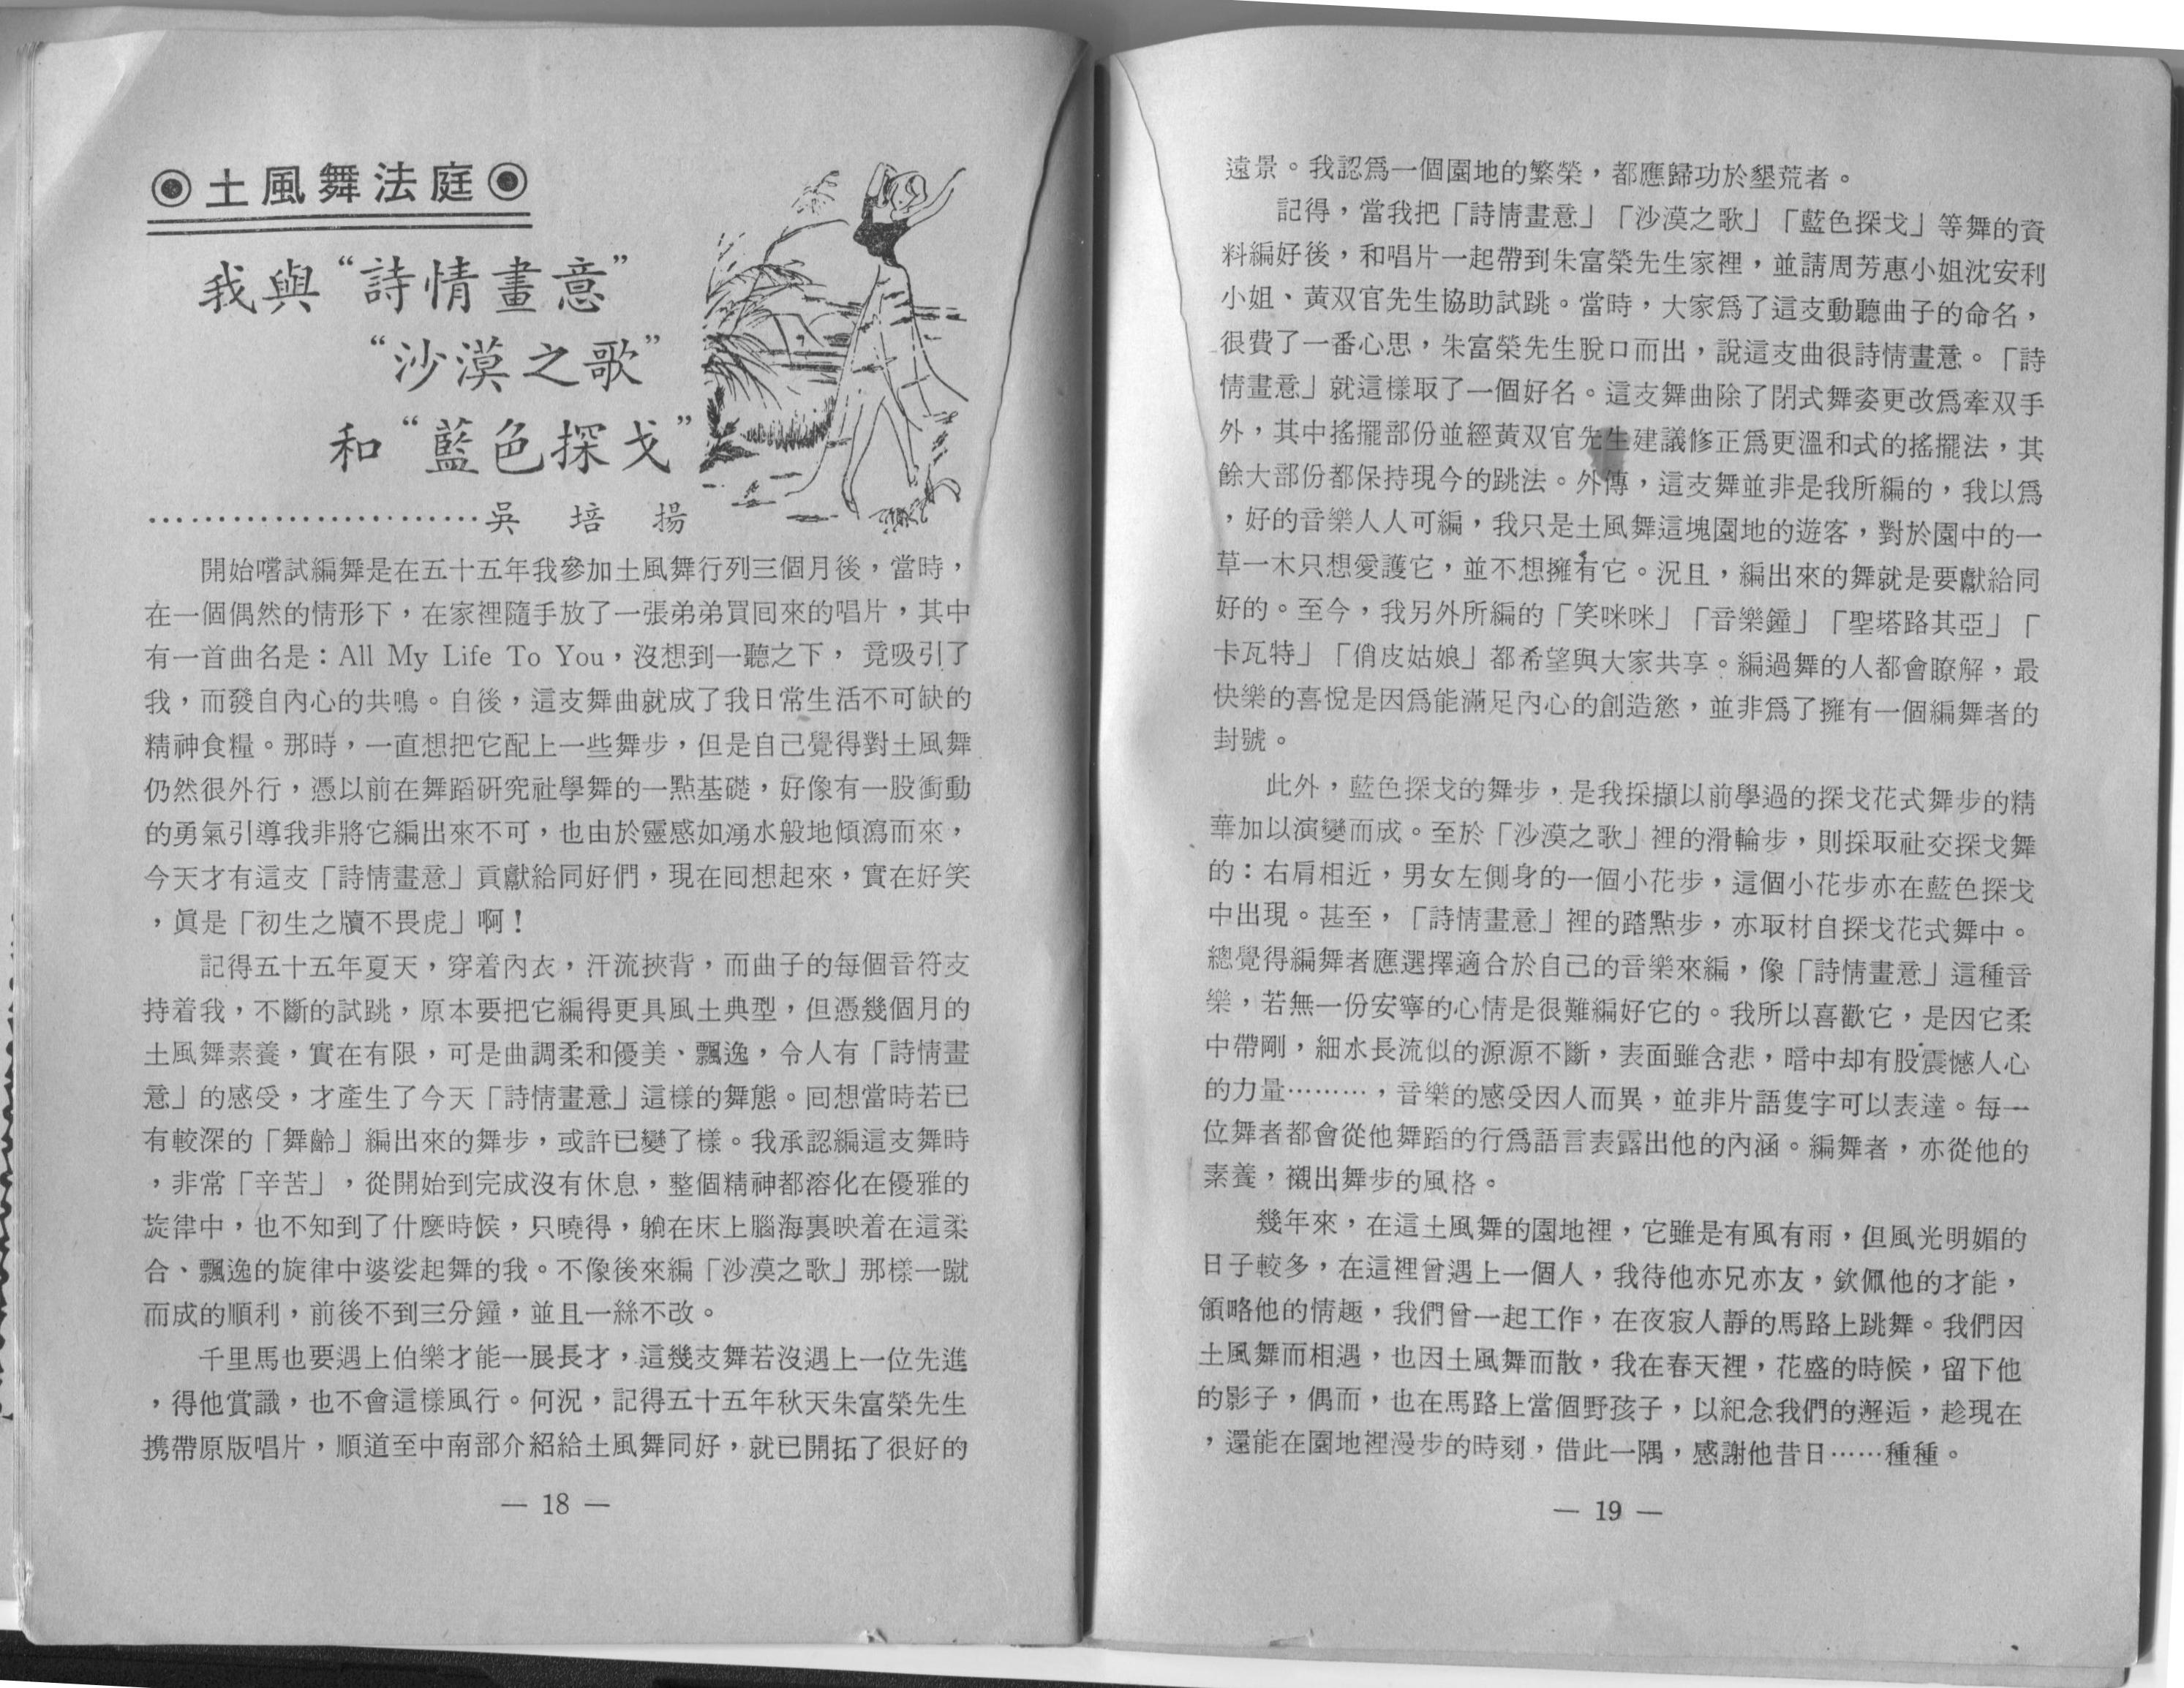 ◉土風舞法庭◉
我與“詩情畫意”
“沙漠之歌”
和“藍色探戈”
························吳 培 揚
開始嚐試編舞是在五十五年我參加土風舞行列三個月後，當時，
在一個偶然的情形下，在家裡隨手放了一張弟弟買回來的唱片，其中
有一首曲名是：All My Life To You，沒想到一聽之下， 竟吸引了
我，而發自內心的共鳴。自後，這支舞曲就成了我日常生活不可缺的
精神食糧。那時，一直想把它配上一些舞步，但是自己覺得對土風舞
仍然很外行，憑以前在舞蹈研究社學舞的一點基礎，好像有一股衝動
的勇氣引導我非將它編出來不可，也由於靈感如湧水般地傾瀉而來，
今天才有這支「詩情畫意」貢獻給同好們，現在回想起來，實在好笑
，眞是「初生之犢不畏虎」啊！
記得五十五年夏天，穿着內衣，汗流挾背，而曲子的每個音符支
持着我，不斷的試跳，原本要把它編得更具風土典型，但憑幾個月的
土風舞素養，實在有限，可是曲調柔和優美、飄逸，令人有「詩情畫
意」的感受，才產生了今天「詩情畫意」這樣的舞態。回想當時若已
有較深的「舞齡」編出來的舞步，或許已變了樣。我承認編這支舞時
，非常「辛苦」，從開始到完成沒有休息，整個精神都溶化在優雅的
旋律中，也不知到了什麽時候，只曉得，躺在床上腦海裏映着在這柔
合、飄逸的旋律中婆娑起舞的我。不像後來編「沙漠之歌」那樣一蹴
而成的順利，前後不到三分鐘，並且一絲不改。
千里馬也要遇上伯樂才能一展長才，這幾支舞若沒遇上一位先進
，得他賞識，也不會這樣風行。何況，記得五十五年秋天朱富榮先生
携帶原版唱片，順道至中南部介紹給土風舞同好，就已開拓了很好的
— 18 —
遠景。我認爲一個園地的繁榮，都應歸功於墾荒者。
記得，當我把「詩情畫意」「沙漠之歌」「藍色探戈」等舞的資
料編好後，和唱片一起帶到朱富榮先生家裡，並請周芳惠小姐沈安利
小姐、黃双官先生協助試跳。當時，大家爲了這支動聽曲子的命名，
很費了一番心思，朱富榮先生脫口而出，說這支曲很詩情畫意。「詩
情畫意」就這樣取了一個好名。這支舞曲除了閉式舞姿更改爲牽双手
外，其中搖擺部份並經黃双官先生建議修正爲更溫和式的搖擺法，其
餘大部份都保持現今的跳法。外傳，這支舞並非是我所編的，我以爲
，好的音樂人人可編，我只是土風舞這塊園地的遊客，對於園中的一
草一木只想愛護它，並不想擁有它。況且，編出來的舞就是要獻給同
好的。至今，我另外所編的「笑咪咪」「音樂鐘」「聖塔路其亞」「
卡瓦特」「俏皮姑娘」都希望與大家共享。編過舞的人都會瞭解，最
快樂的喜悅是因爲能滿足內心的創造慾，並非爲了擁有一個編舞者的
封號。
此外，藍色探戈的舞步，是我採擷以前學過的探戈花式舞步的精
華加以演變而成。至於「沙漠之歌」裡的滑輪步，則採取社交探戈舞
的：右肩相近，男女左側身的一個小花步，這個小花步亦在藍色探戈
中出現。甚至，「詩情畫意」裡的踏點步，亦取材自探戈花式舞中。
總覺得編舞者應選擇適合於自己的音樂來編，像「詩情畫意」這種音
樂，若無一份安寧的心情是很難編好它的。我所以喜歡它，是因它柔
中帶剛，細水長流似的源源不斷，表面雖含悲，暗中却有股震憾人心
的力量………，音樂的感受因人而異，並非片語隻字可以表達。每一
位舞者都會從他舞蹈的行爲語言表露出他的內涵。編舞者，亦從他的
素養，襯出舞步的風格。
幾年來，在這土風舞的園地裡，它雖是有風有雨，但風光明媚的
日子較多，在這裡曾遇上一個人，我待他亦兄亦友，欽佩他的才能，
領略他的情趣，我們曾一起工作，在夜寂人靜的馬路上跳舞。我們因
土風舞而相遇，也因土風舞而散，我在春天裡，花盛的時候，留下他
的影子，偶而，也在馬路上當個野孩子，以紀念我們的邂逅，趁現在
，還能在園地裡漫步的時刻，借此一隅，感謝他昔日……種種。
— 19 —